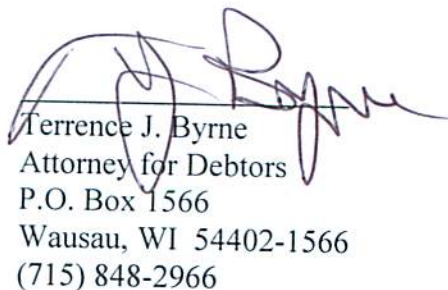 TJ Byrne
Terrence J. Byrne
Attorney for Debtors
P.O. Box 1566
Wausau, WI 54402-1566
(715) 848-2966